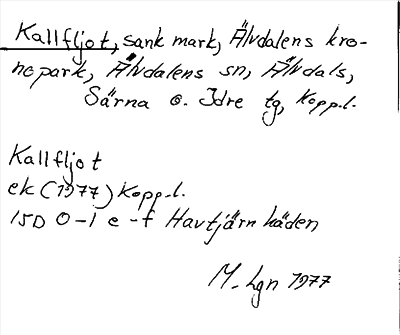 Kallfljot, sank mark, Älvdalens kro-
nopark, Älvdalens sn, Älvdals,
Särna o. Idre tg, Kopp.l.
Kallfljot
ek (1977) Kopp.l.
15D 0-1 e-f Havtjärnhäden
M-lgn 1977